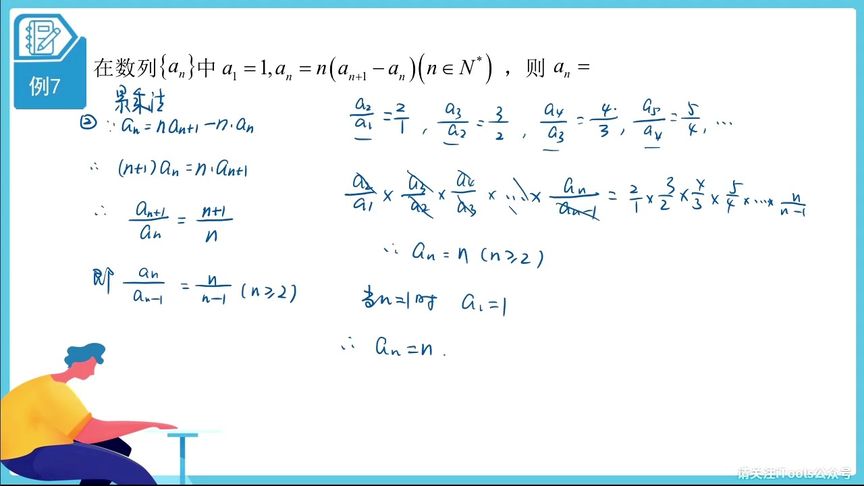 例7
在数列{aₙ}中 a₁ = 1, aₙ = n(aₙ₊₁ − aₙ)(n ∈ N*)，则 aₙ =
累乘法
② ∵ aₙ = naₙ₊₁ − n·aₙ
∴ (n+1)aₙ = n·aₙ₊₁
∴ aₙ₊₁/aₙ = (n+1)/n
即 aₙ/aₙ₋₁ = n/(n−1) (n≥2)
a₂/a₁ = 2/1, a₃/a₂ = 3/2, a₄/a₃ = 4/3, a₅/a₄ = 5/4, …
a₂/a₁ × a₃/a₂ × a₄/a₃ × … × aₙ/aₙ₋₁ = 2/1 × 3/2 × 4/3 × 5/4 × … × n/(n−1)
∴ aₙ = n (n≥2)
当n=1时 a₁=1
∴ aₙ = n.
请关注iTools公众号